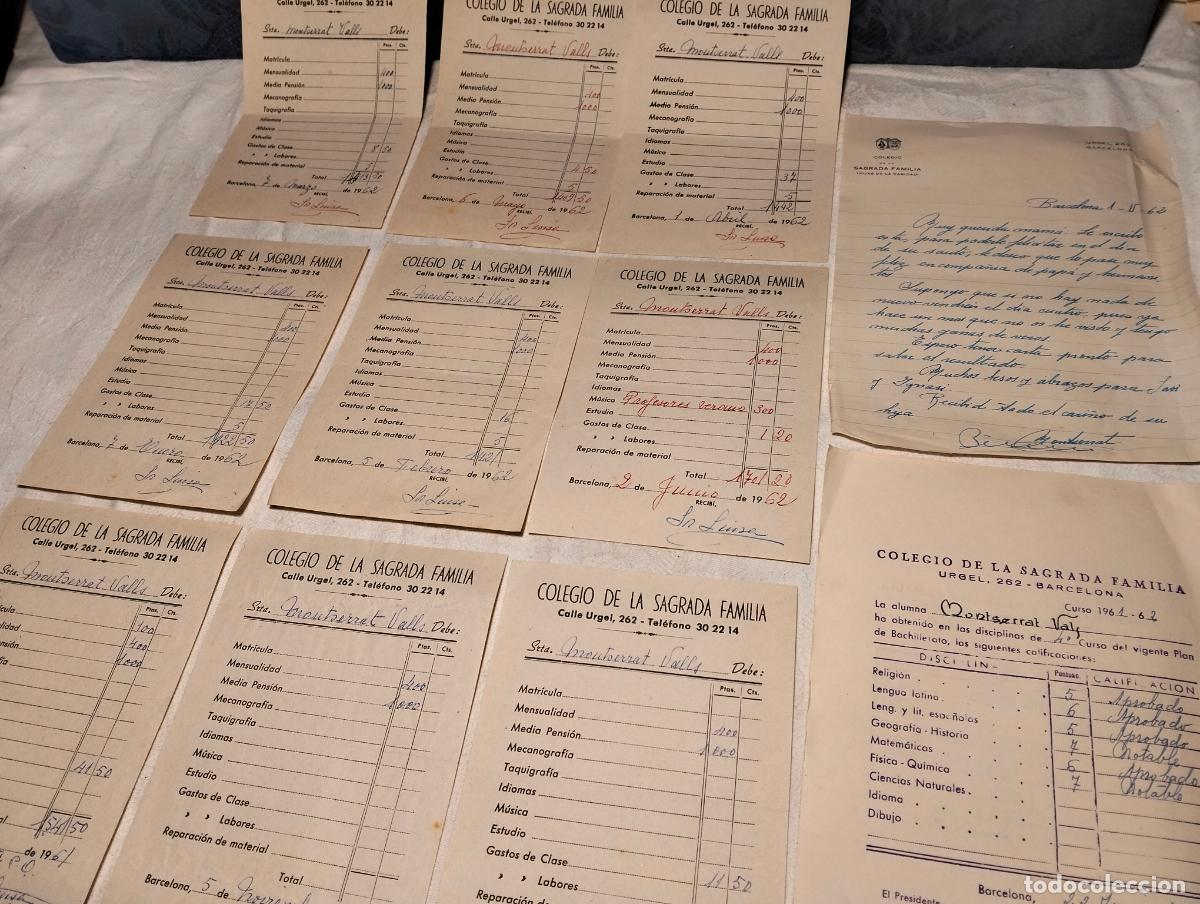 Calle Urgel, 262 - Teléfono 30 22 14
Srta. Montserrat Valls Debe:
Ptas. Cts.
Matrícula
Mensualidad 400
Media Pensión 1000
Mecanografía
Taquigrafía
Idiomas
Música
Estudio
Gastos de Clase 8 50
» » Labores
Reparación de material 5
Total
Barcelona, 7 de Marzo de 1962
RECIBÍ,
Sr Luisa
COLEGIO DE LA SAGRADA FAMILIA
Calle Urgel, 262 - Teléfono 30 22 14
Srta. Montserrat Valls Debe:
Ptas. Cts.
Matrícula
Mensualidad 400
Media Pensión 1000
Mecanografía
Taquigrafía
Idiomas
Música
Estudio
Gastos de Clase 4 50
» » Labores
Reparación de material 5
Total 1409 50
Barcelona, 6 de Mayo de 1962
RECIBÍ,
Sr Luisa
COLEGIO DE LA SAGRADA FAMILIA
Calle Urgel, 262 - Teléfono 30 22 14
Srta. Montserrat Valls Debe:
Ptas. Cts.
Matrícula
Mensualidad 400
Media Pensión 1000
Mecanografía
Taquigrafía
Idiomas
Música
Estudio
Gastos de Clase 37
» » Labores
Reparación de material 5
Total 1442
Barcelona, 1 de Abril de 1962
RECIBÍ,
Sr Luisa
COLEGIO
DE LA
SAGRADA FAMILIA
URGEL, 262
BARCELONA
Barcelona 1-II-62
Muy querida mamá: te escribo
a ti, para poderte felicitar en el día
de su santo, le deseo que lo pase muy
feliz en compañía de papá y hermanos
Supongo que si no hay nada de
nuevo vendrán el día cuatro, pues ya
hace un mes que no os he visto y tengo
muchas ganas de veros.
Espero tener carta pronto para
saber el resultado.
Muchos besos y abrazos para Javi
y Ignasi.
Recibid todo el cariño de su
hija
Montserrat
COLEGIO DE LA SAGRADA FAMILIA
Calle Urgel, 262 - Teléfono 30 22 14
Srta. Montserrat Valls Debe:
Ptas. Cts.
Matrícula
Mensualidad 400
Media Pensión 1000
Mecanografía
Taquigrafía
Idiomas
Música
Estudio
Gastos de Clase 17 50
» » Labores
Reparación de material 5
Total 1422 50
Barcelona, 7 de Enero de 1962
RECIBÍ,
Sr Luisa
COLEGIO DE LA SAGRADA FAMILIA
Calle Urgel, 262 - Teléfono 30 22 14
Srta. Montserrat Valls Debe:
Ptas. Cts.
Matrícula
Mensualidad 400
Media Pensión 1000
Mecanografía
Taquigrafía
Idiomas
Música
Estudio
Gastos de Clase 16
» » Labores
Reparación de material 5
Total 1421
Barcelona, 5 de Febrero de 1962
RECIBÍ,
Sr Luisa
COLEGIO DE LA SAGRADA FAMILIA
Calle Urgel, 262 - Teléfono 30 22 14
Srta. Montserrat Valls Debe:
Ptas. Cts.
Matrícula
Mensualidad 400
Media Pensión 1000
Mecanografía
Taquigrafía
Idiomas
Música Profesores verano 300
Estudio
Gastos de Clase 1 20
» » Labores
Reparación de material
Total 1701 20
Barcelona, 2 de Junio de 1962
RECIBÍ,
Sr Luisa
COLEGIO DE LA SAGRADA FAMILIA
Calle Urgel, 262 - Teléfono 30 22 14
Montserrat Valls Debe:
Ptas. Cts.
100
400
1000
41 50
1541 50
de 1961
P.O.
COLEGIO DE LA SAGRADA FAMILIA
Calle Urgel, 262 - Teléfono 30 22 14
Srta. Montserrat Valls Debe:
Ptas. Cts.
Matrícula
Mensualidad 400
Media Pensión 1000
Mecanografía
Taquigrafía
Idiomas
Música
Estudio
Gastos de Clase
» » Labores
Reparación de material
Total
Barcelona, 5 de
COLEGIO DE LA SAGRADA FAMILIA
Calle Urgel, 262 - Teléfono 30 22 14
Srta. Montserrat Valls Debe:
Ptas. Cts.
Matrícula
Mensualidad 400
Media Pensión 1000
Mecanografía
Taquigrafía
Idiomas
Música
Estudio
Gastos de Clase
» » Labores 11 50
Reparación de
COLEGIO DE LA SAGRADA FAMILIA
URGEL, 262 - BARCELONA
Curso 1961-62
La alumna Montserrat Vals
ha obtenido en las disciplinas de 4º Curso del vigente Plan
de Bachillerato, las siguientes calificaciones:
DISCIPLIN- Puntuac. CALIFICACION
Religión 5 Aprobado
Lengua latina 6 Aprobado
Leng. y lit. españolas 5 Aprobado
Geografía - Historia 7 Notable
Matemáticas 6 Aprobado
Física - Química 7 Notable
Ciencias Naturales
Idioma
Dibujo
Barcelona,
El Presidente
todocoleccion